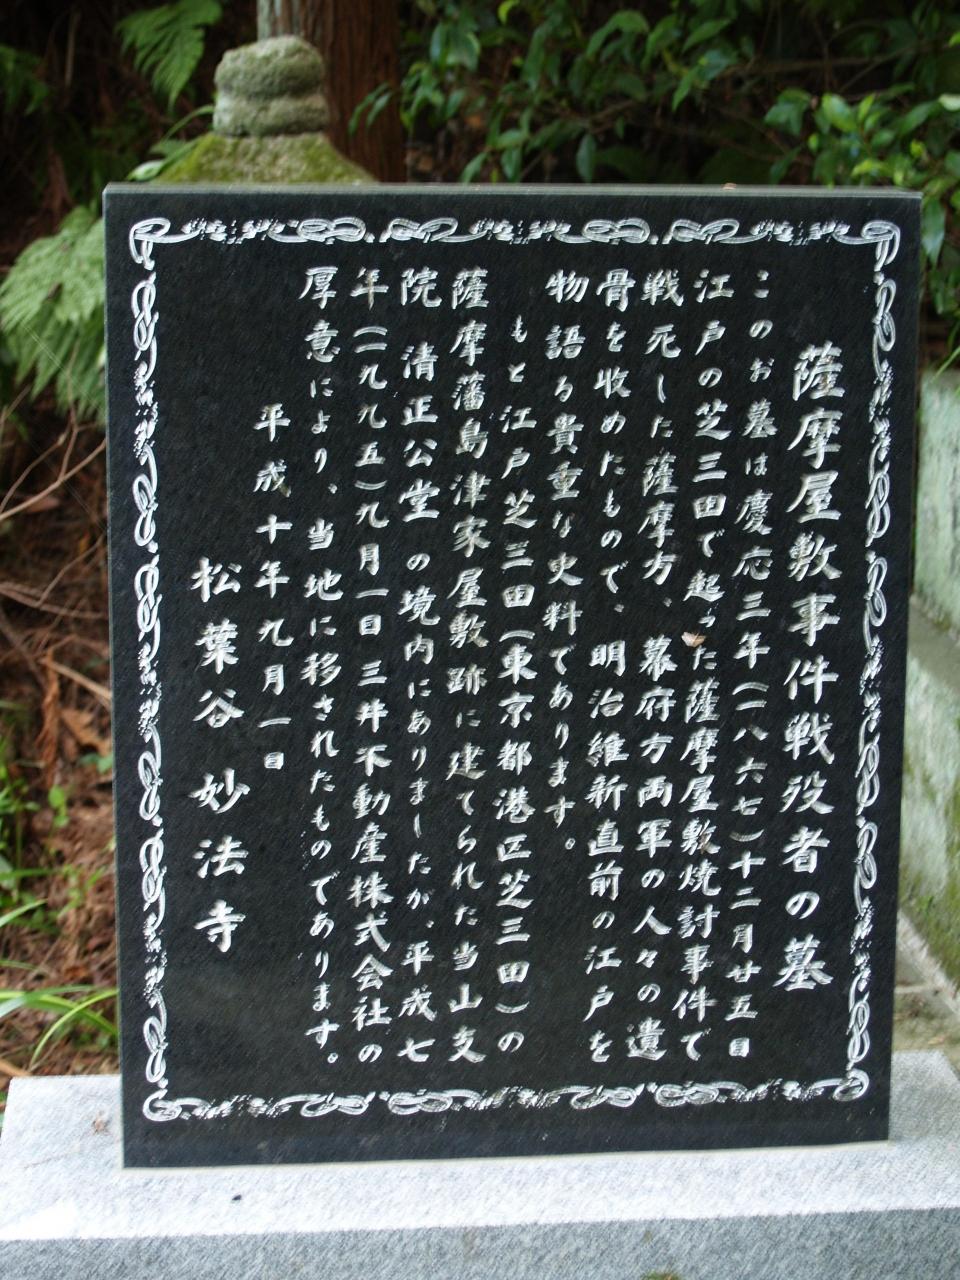 薩摩屋敷事件戦役者の墓
このお墓は慶応三年(一八六七)十二月廿五日
江戸の芝三田で起った薩摩屋敷焼討事件で
戦死した薩摩方、幕府方両軍の人々の遺
骨を收めたもので、明治維新直前の江戸を
物語る貴重な史料であります。
もと江戸芝三田(東京都港区芝三田)の
薩摩藩島津家屋敷跡に建てられた当山支
院 清正公堂の境内にありましたが、平成七
年(一九九五)九月一日三井不動産株式会社の
厚意により、当地に移されたものであります。
平成十年九月一日
松葉谷 妙法寺